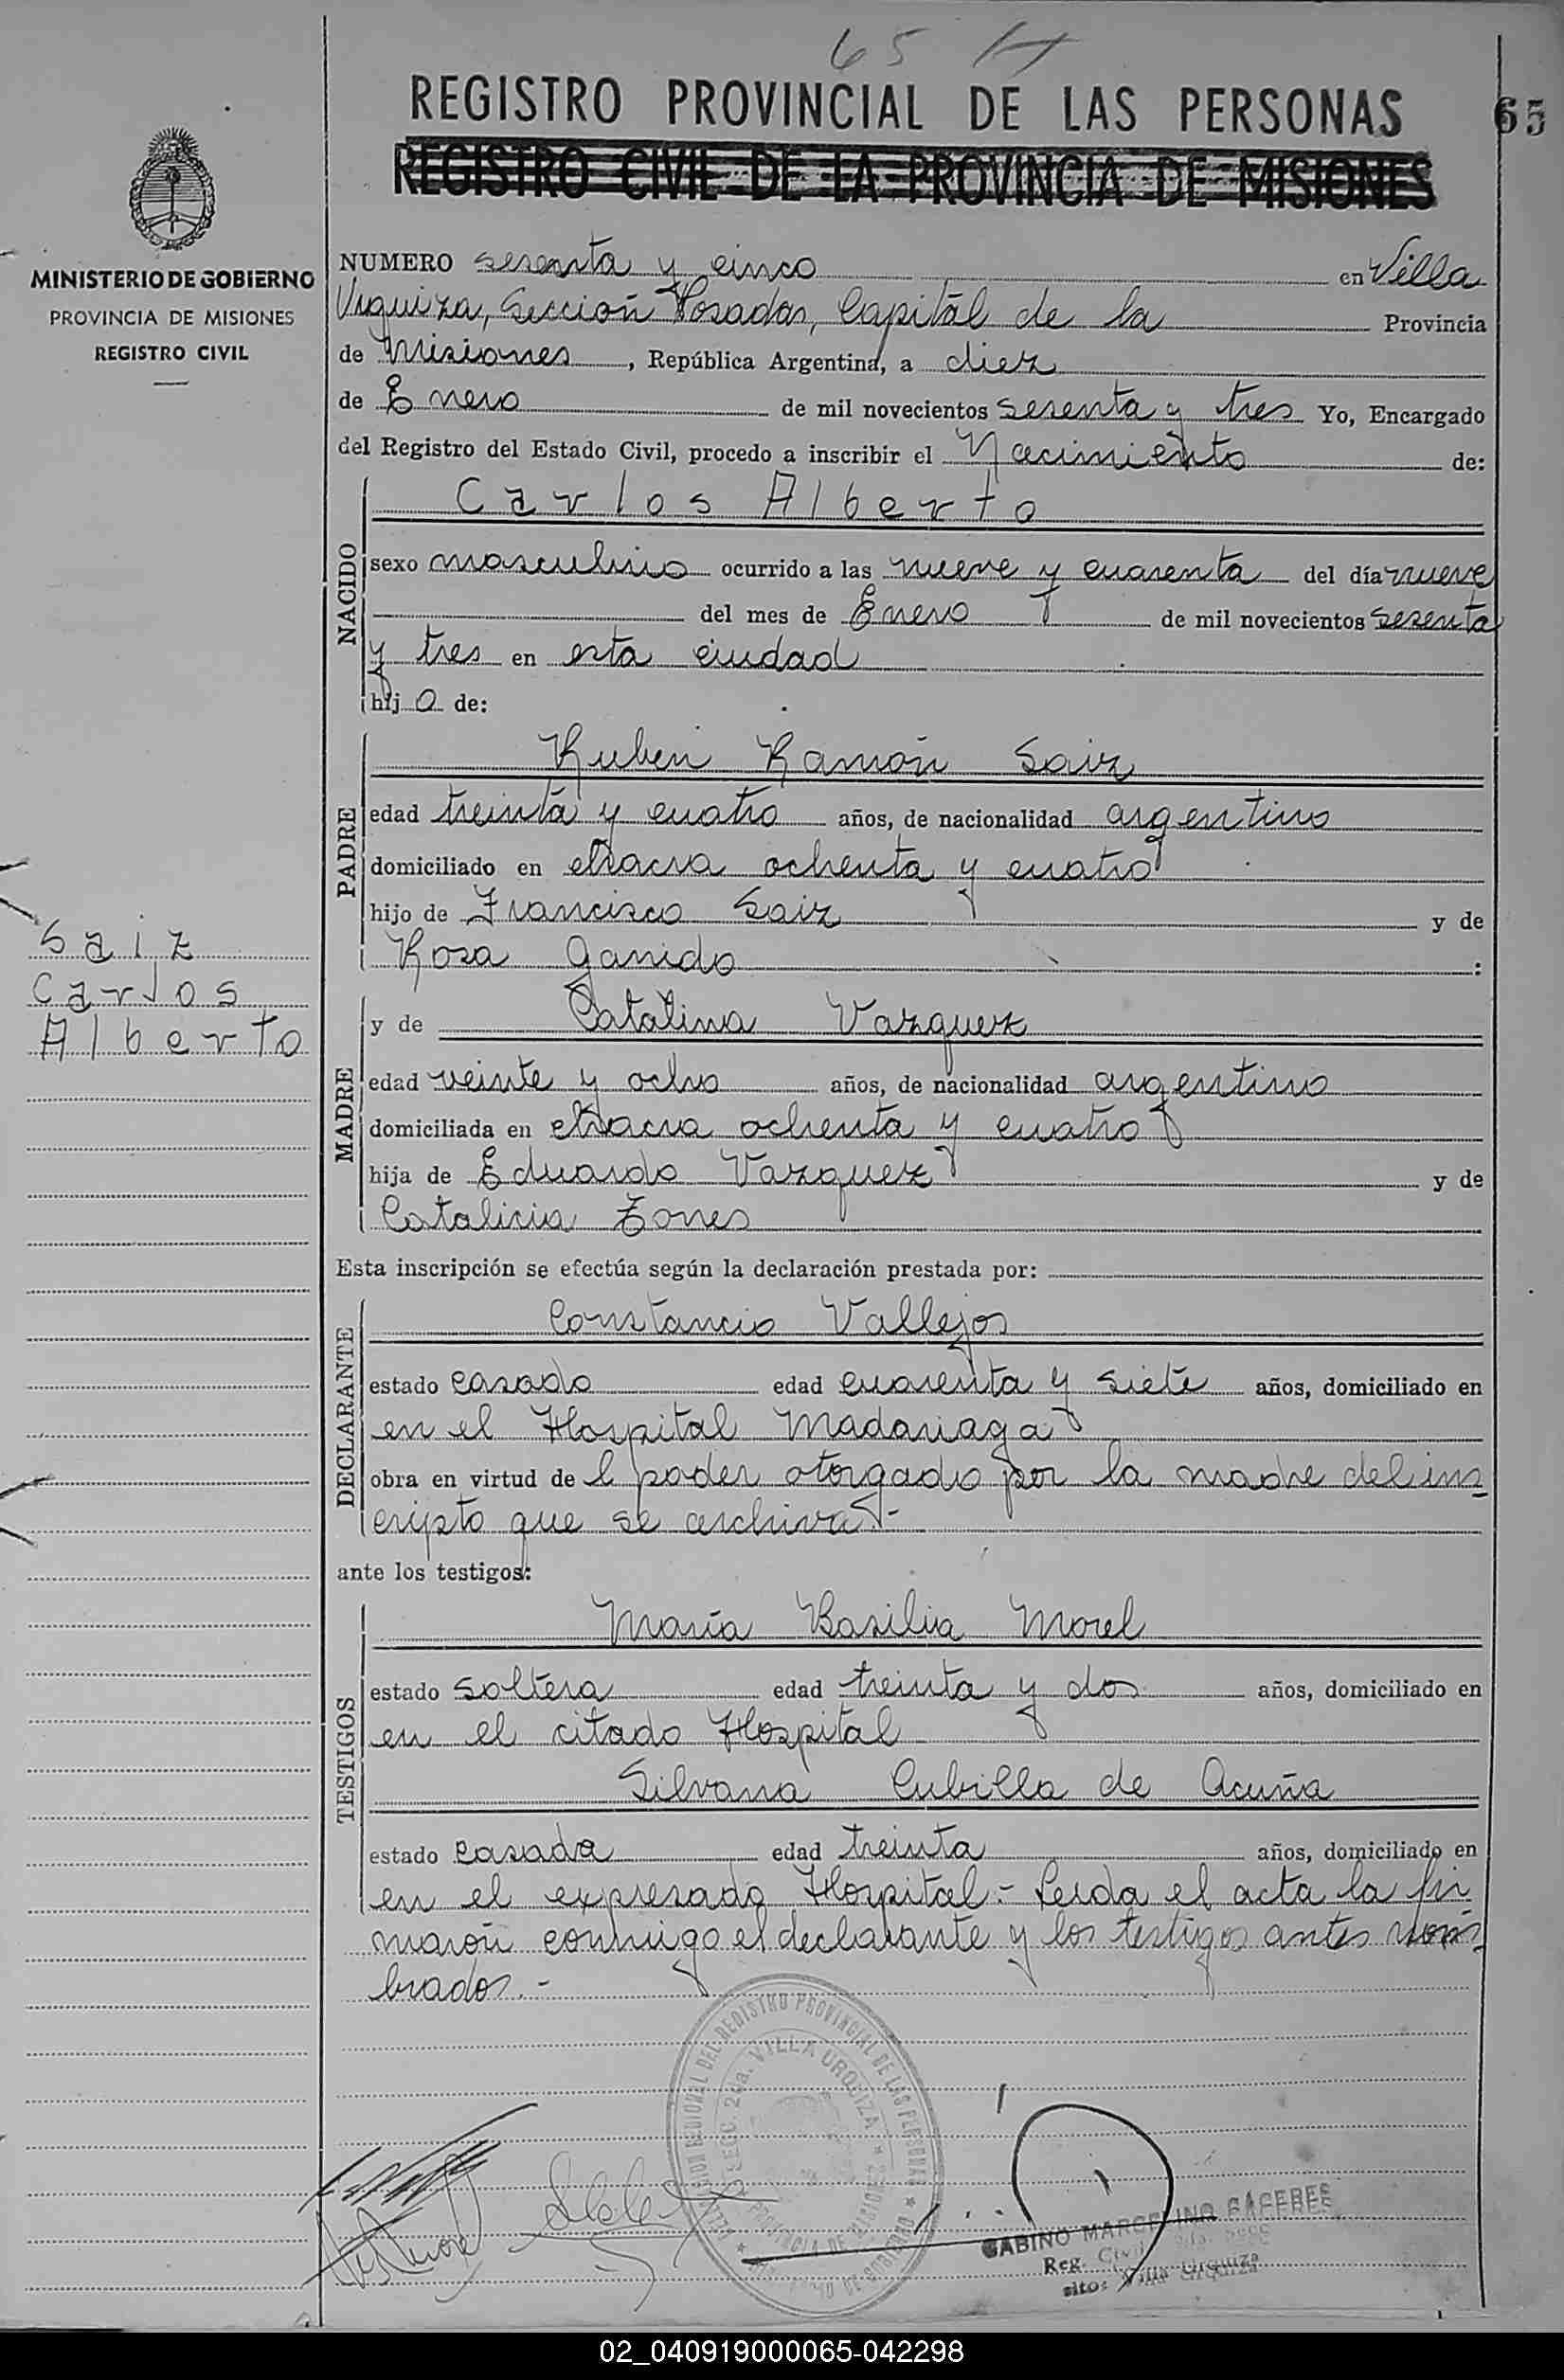 65
REGISTRO PROVINCIAL DE LAS PERSONAS
65
REGISTRO CIVIL DE LA PROVINCIA DE MISIONES
MINISTERIO DE GOBIERNO
PROVINCIA DE MISIONES
REGISTRO CIVIL
NUMERO sesenta y cinco en Villa
Urquiza, Sección Posadas, Capital de la Provincia
de Misiones, República Argentina, a diez
de Enero de mil novecientos sesenta y tres Yo, Encargado
del Registro del Estado Civil, procedo a inscribir el Nacimiento de:
NACIDO
Carlos Alberto
sexo masculino ocurrido a las nueve y cuarenta del día nueve
del mes de Enero de mil novecientos sesenta
y tres en esta ciudad
hijo de:
PADRE
Ruben Ramón Saiz
edad treinta y cuatro años, de nacionalidad argentino
domiciliado en chacra ochenta y cuatro
hijo de Francisco Saiz y de
Rosa Garrido :
Saiz
Carlos
Alberto
MADRE
y de Catalina Vazquez
edad veinte y ocho años, de nacionalidad argentino
domiciliada en chacra ochenta y cuatro
hija de Eduardo Vazquez y de
Catalicia
Esta inscripción se efectúa según la declaración prestada por:
DECLARANTE
Constancio Vallejos
estado casado edad cuarenta y siete años, domiciliado en
en el Hospital Madariaga
obra en virtud de l poder otorgado por la madre del ins
cripto que se archiva.-
ante los testigos:
TESTIGOS
María Basilia Morel
estado soltera edad treinta y dos años, domiciliado en
en el citado Hospital
Silvana Cubilla de Acuña
estado casada edad treinta años, domiciliado en
en el expresado Hospital.- Leida el acta la fir
maron conmigo el declarante y los testigos antes nom
brados.-
DEL REGISTRO PROVINCIAL DE LAS PERSONAS
SECC. 2da. VILLA URQUIZA
PROVINCIA DE MISIONES
GABINO MARCELINO CACERES
Reg. Civil
sito: Villa Urquiza
02_040919000065-042298